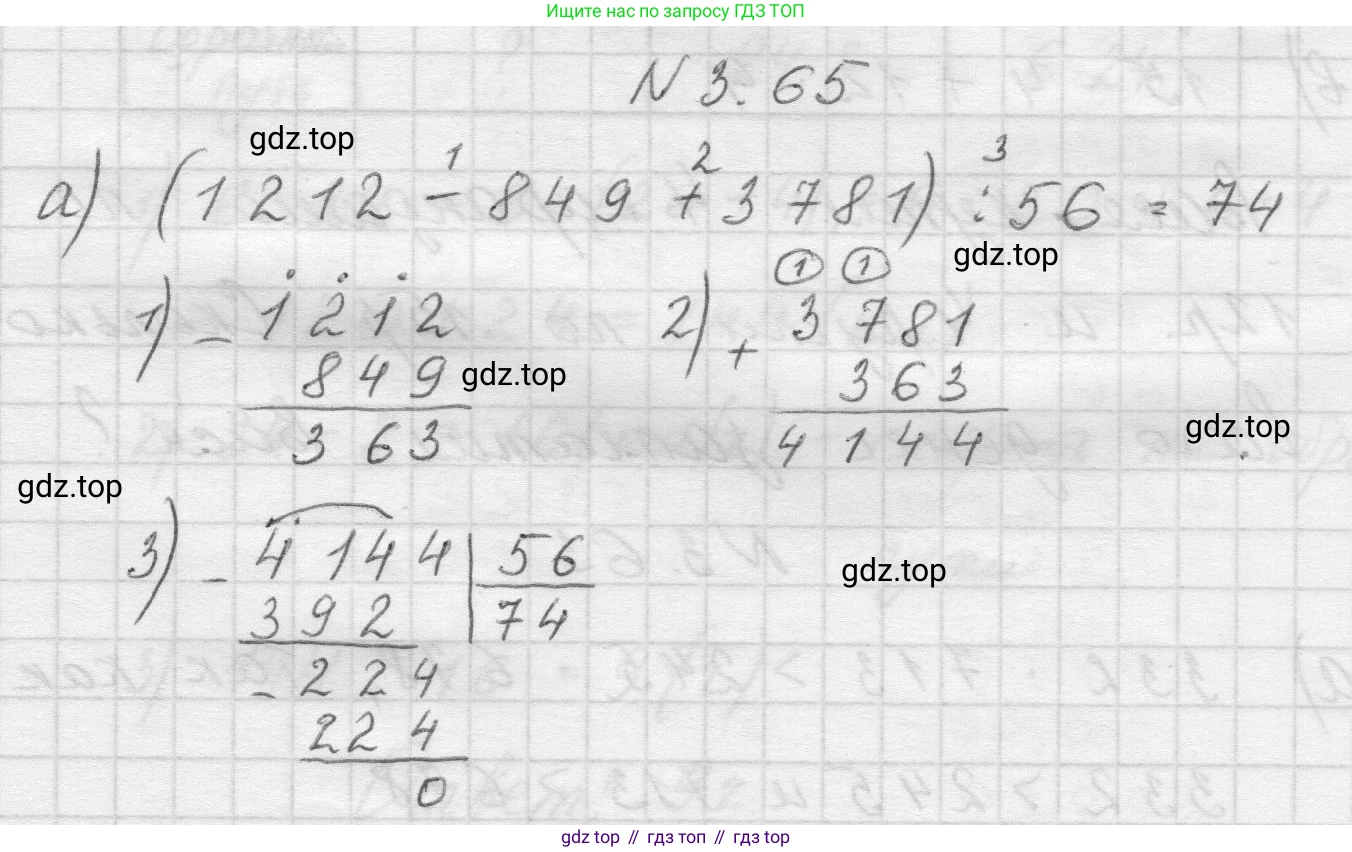 Ищите нас по запросу ГДЗ ТОП
N 3. 65
gdz.top
1 2 3
а) (1212 - 849 + 3781) : 56 = 74
gdz.top
1) - 1212
849
363
gdz.top
2) + 3781
1 1
363
4144
gdz.top
gdz.top
3) - 4144 | 56
392 74
- 224
224
0
gdz.top
gdz.top // гдз топ // gdz top